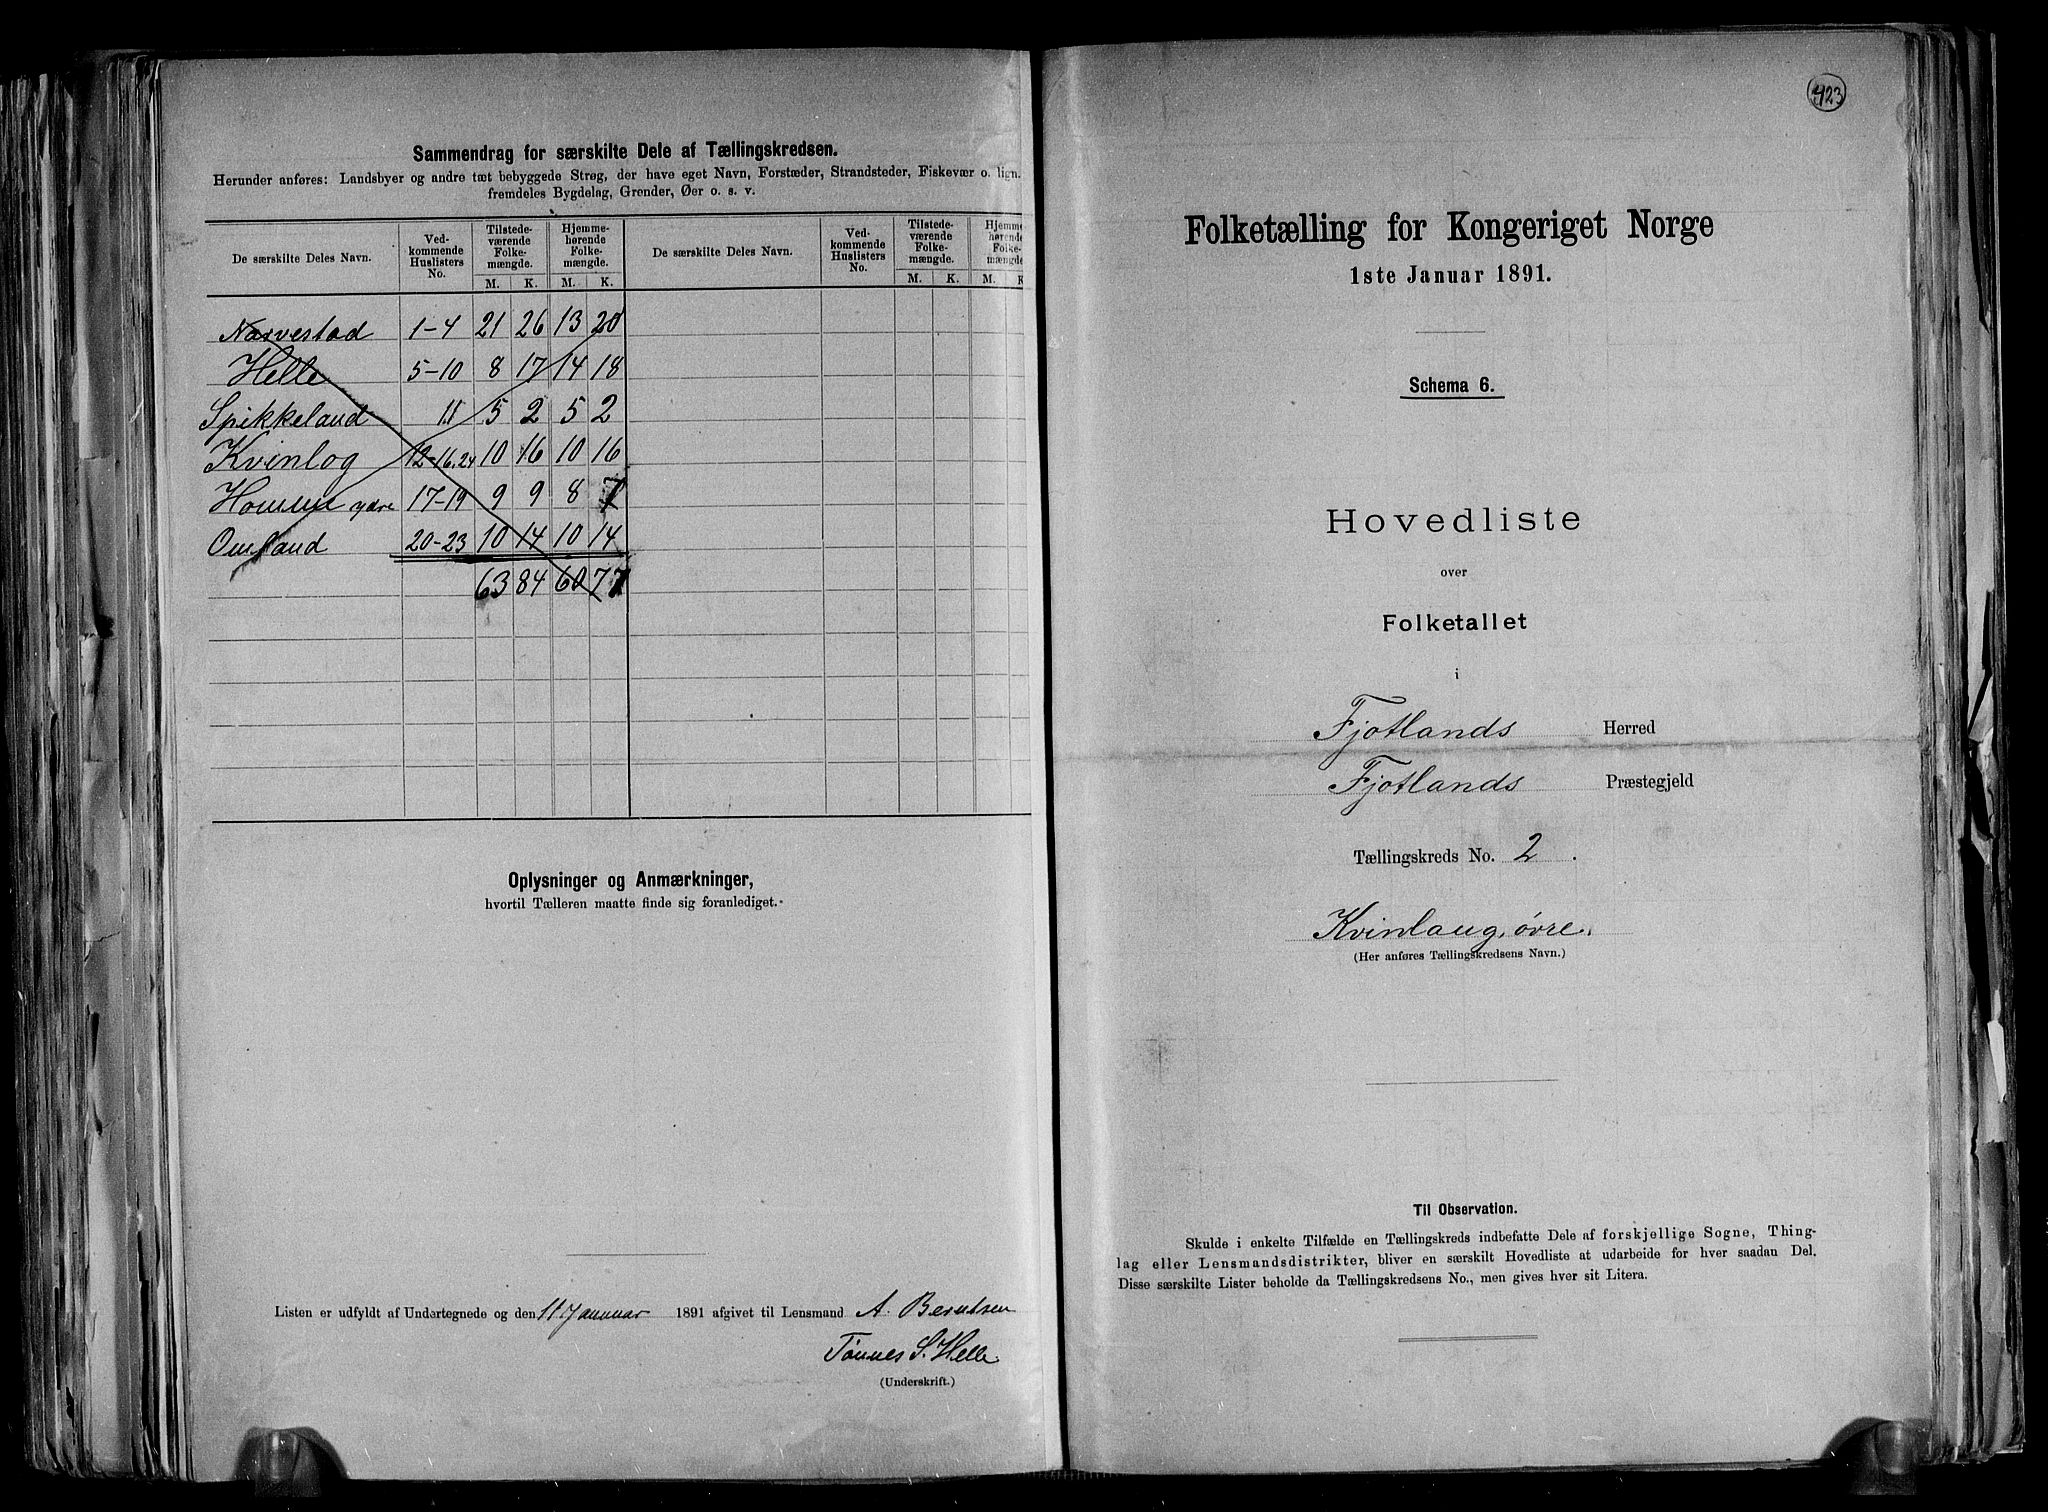 Sammendrag for særskilte Dele af Tællingskredsen.
Herunder anføres: Landsbyer og andre tæt bebyggede Strøg, der have eget Navn, Forstæder, Strandsteder, Fiskevær o. lign.
fremdeles Bygdelag, Grender, Øer o. s. v.
De særskilte Deles Navn. Ved-kommende Huslisters No. Tilstede-værende Folke-mængde. Hjemme-hørende Folke-mængde. De særskilte Deles Navn. Ved-kommende Huslisters No. Tilstede-værende Folke-mængde. Hjemme-hørende Folke-mængde.
M. K. M. K. M. K. M. K.
Narvestad 1-4 21 26 13 20
Helle 5-10 8 17 14 18
Spikkeland 11 5 2 5 2
Kvinlog 12-16.24 10 16 10 16
Homme ydre 17-19 9 9 8 7
Omland 20-23 10 14 10 14
63 84 60 77
Oplysninger og Anmærkninger,
hvortil Tælleren maatte finde sig foranlediget.
Listen er udfyldt af Undertegnede og den 11 Januar 1891 afgivet til Lensmand A. Berntsen
Tønnes S. Helle
(Underskrift.)
423
Folketælling for Kongeriget Norge
1ste Januar 1891.
Schema 6.
Hovedliste
over
Folketallet
i
Fjotlands Herred
Fjotlands Præstegjeld
Tællingskreds No. 2.
Kvinlaug, øvre.
(Her anføres Tællingskredsens Navn.)
Til Observation.
Skulde i enkelte Tilfælde en Tællingskreds indbefatte Dele af forskjellige Sogne, Thing-
lag eller Lensmandsdistrikter, bliver en særskilt Hovedliste at udarbeide for hver saadan Del.
Disse særskilte Lister beholde da Tællingskredsens No., men gives hver sit Litera.